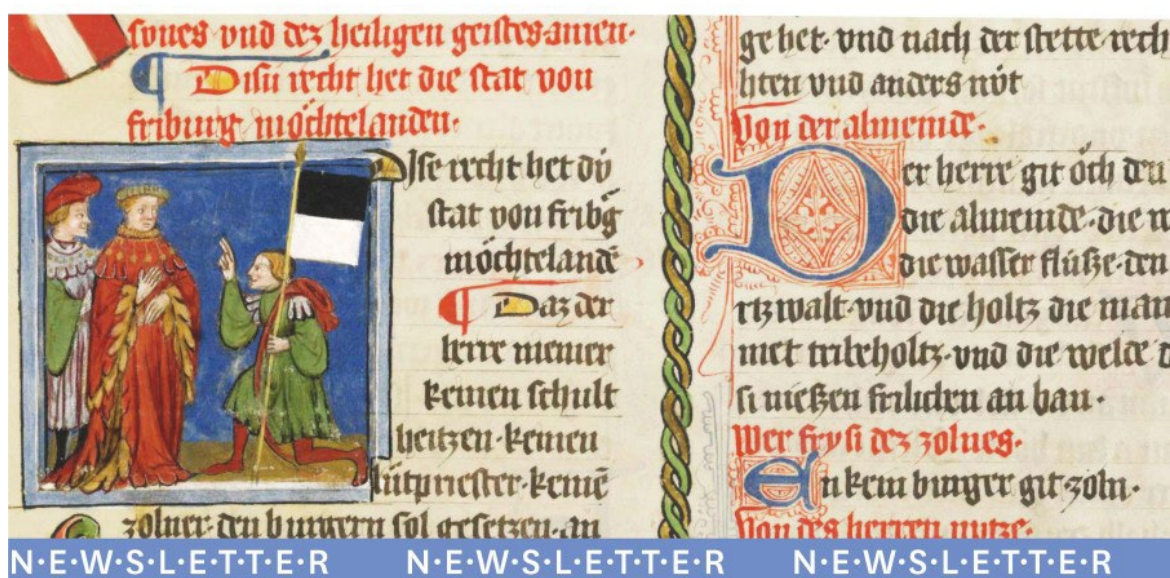 sunes vnd dez heiligen geistes amen·
¶ Disu recht het die stat von
friburg möchtelanden·
Dise recht het dü
stat von fribg
möchtelandē
¶ Daz der
herre niemer
keinen schult
heitzen·keinen
lütpriester·keinē
zolner·den burgern sol gesetzen·an
gebet·vnd nach der stette rech
hten vnd anders nüt
Von der almeinde·
Der herre git öch den
die almeinde·die
die wasser flüsse·den
rtzwalt·vnd die holtz die man
met
vnd die welde d
si niessen frilichen an ban·
Wer fry si dez zolnes·
Enkein burger git zoln·
Von des herren nutze·
N·E·W·S·L·E·T·T·E·R N·E·W·S·L·E·T·T·E·R N·E·W·S·L·E·T·T·E·R